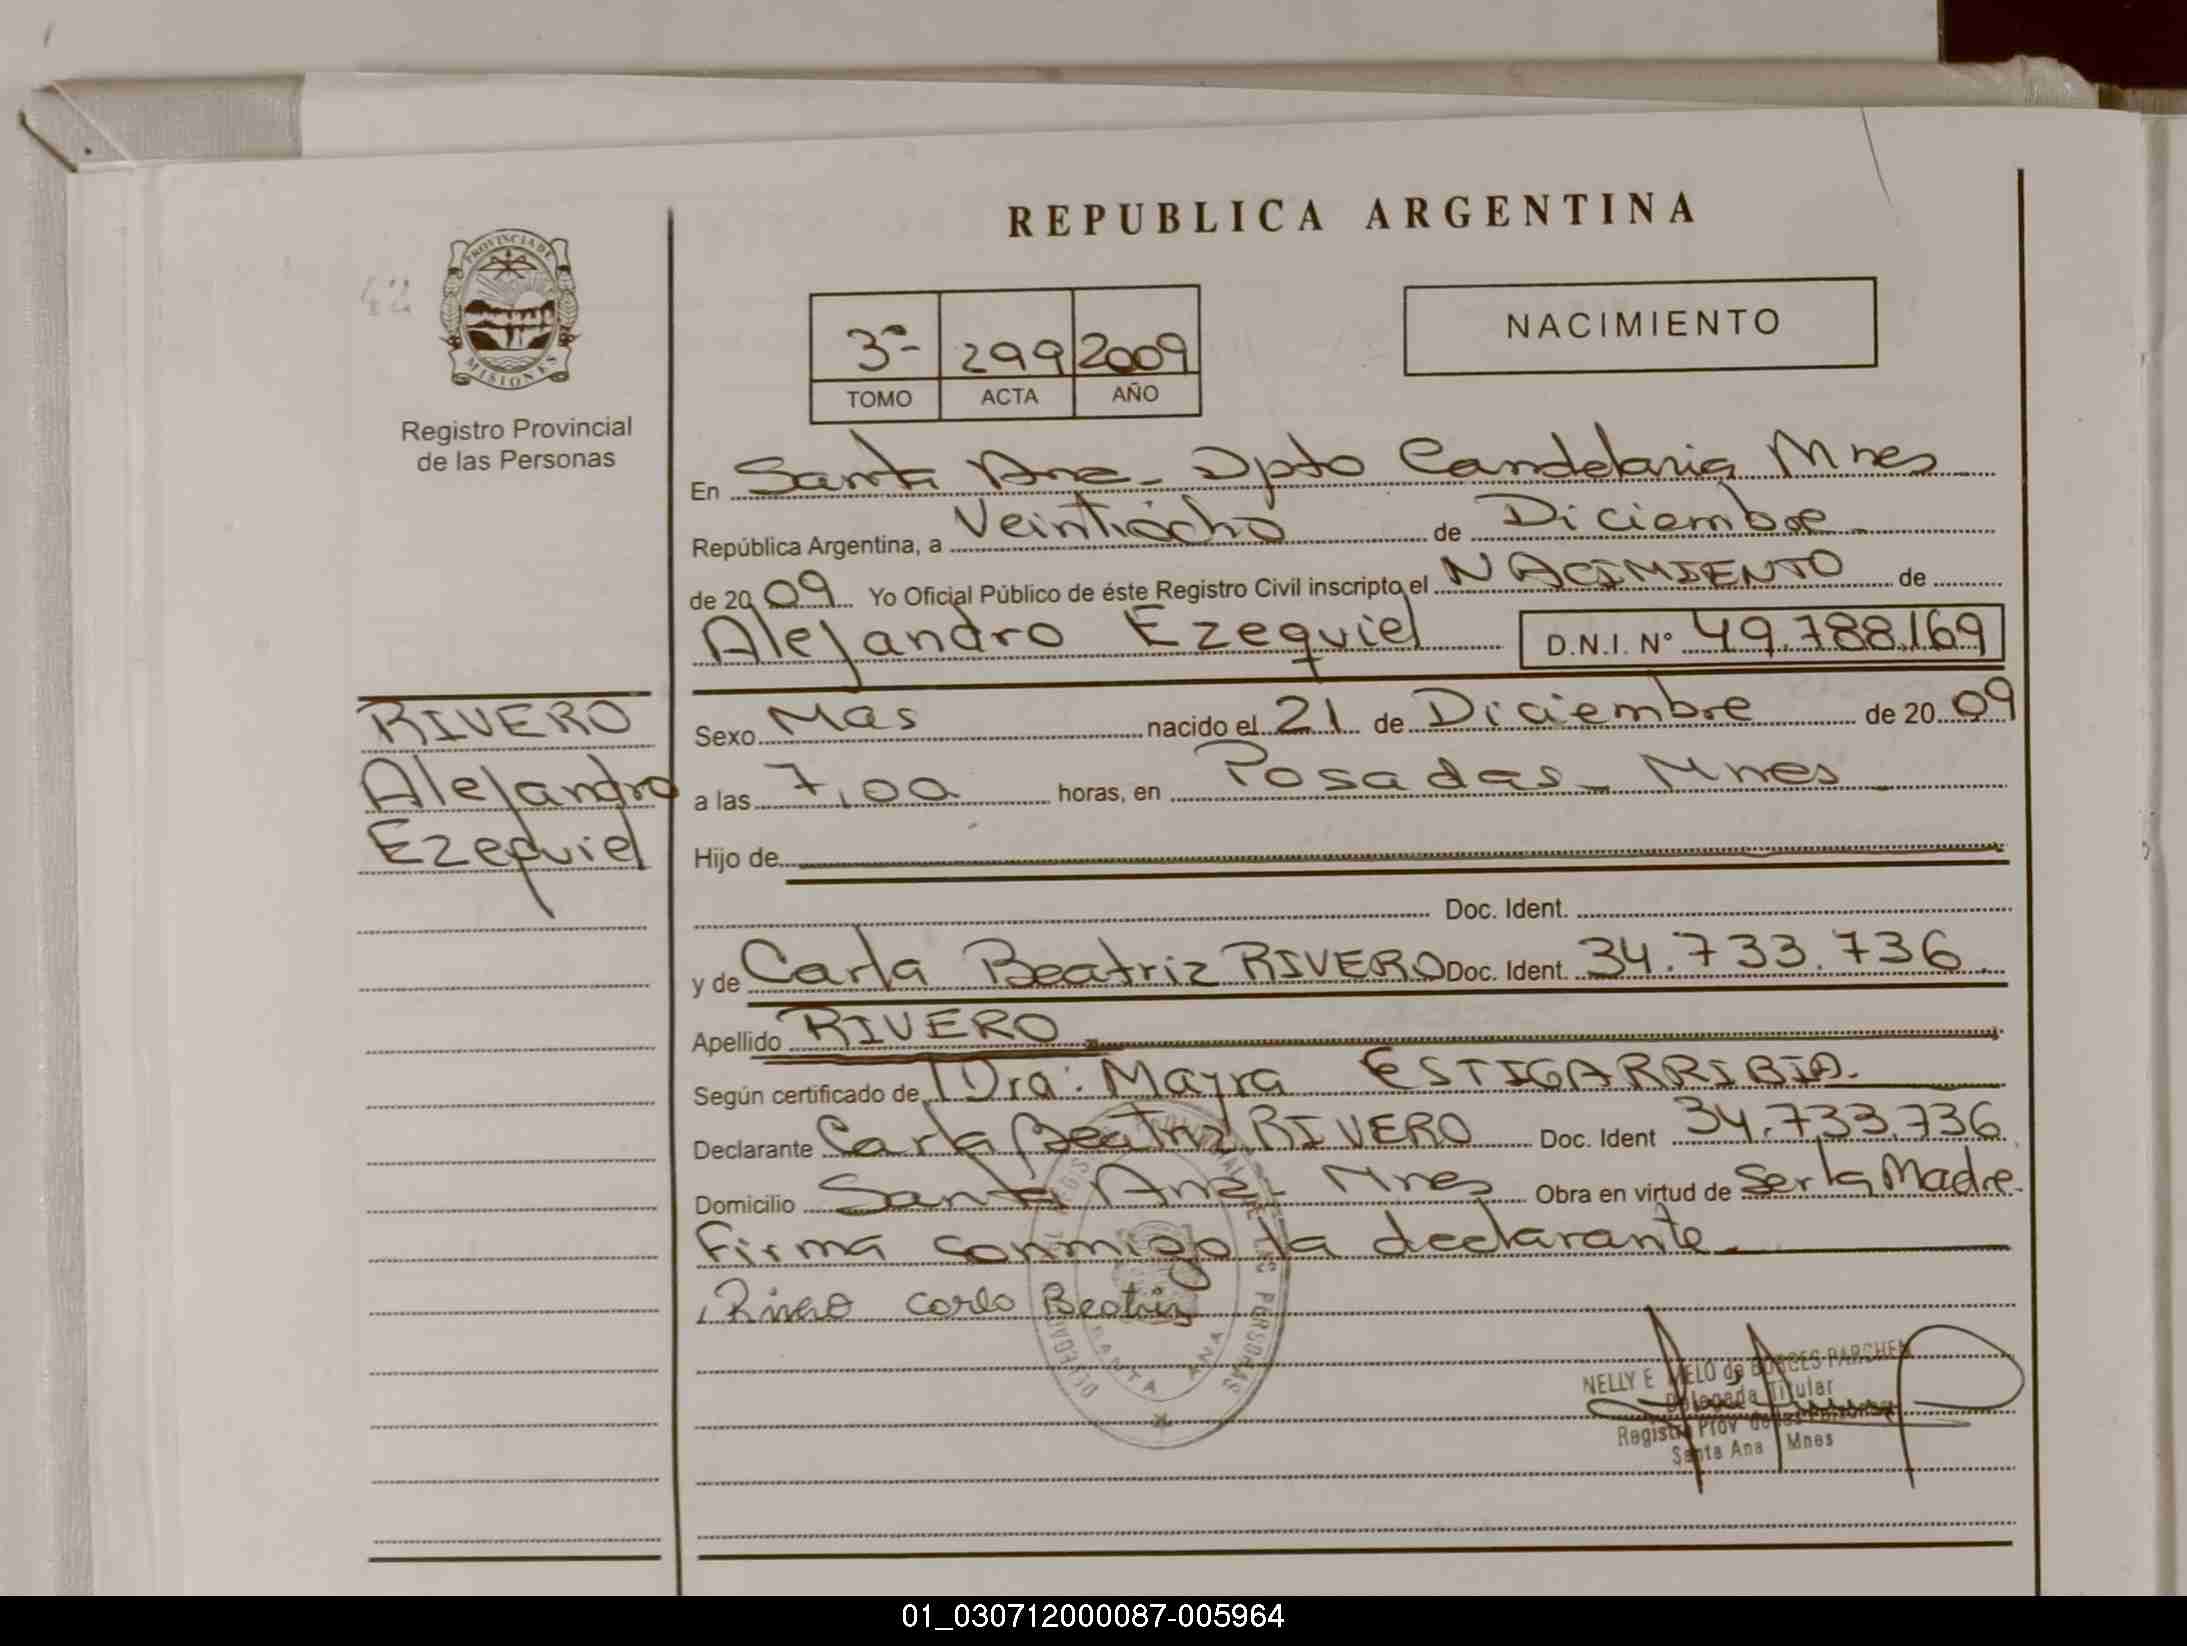 REPUBLICA ARGENTINA
42
PROVINCIA DE
MISIONES
Registro Provincial
de las Personas
3º- 299 2009
TOMO ACTA AÑO
NACIMIENTO
En Santa Ana - Dpto Candelaria Mnes
República Argentina, a Veintiocho de Diciembre
de 20 09 Yo Oficial Público de éste Registro Civil inscripto el NACIMIENTO de
Alejandro Ezequiel D.N.I. Nº 49.788.169
RIVERO
Alejandro
Ezequiel
Sexo Mas nacido el 21 de Diciembre de 20 09
a las 7,00 horas, en Posadas - Mnes
Hijo de
Doc. Ident.
y de Carla Beatriz RIVERO Doc. Ident. 34.733.736
Apellido RIVERO
Según certificado de Dra: Mayra ESTIGARRIBIA.
Declarante Carla Beatriz RIVERO Doc. Ident 34.733.736
Domicilio Santa Ana - Mnes Obra en virtud de Ser la Madre
Firma conmigo la declarante
Rivero Carla Beatriz
DE LAS PERSONAS
SANTA ANA
NELLY E MELO de BORGES PARCHEN
Delegada Titular
Registro Prov de las Personas
Santa Ana Mnes
01_030712000087-005964